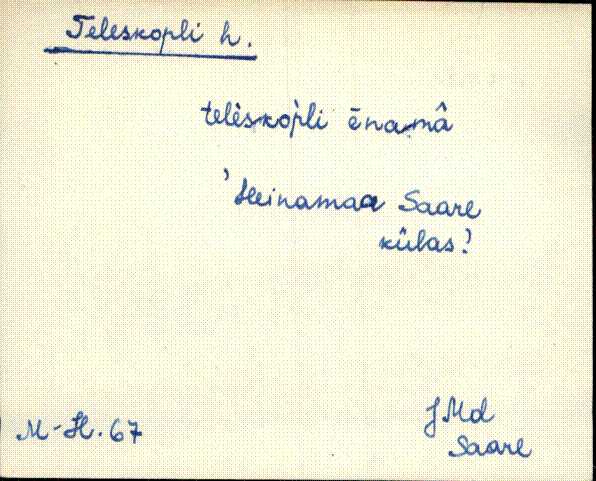 Teleskopli h.
telèskòpli ēnamâ
'Heinamaa Saare
külas!
M-H. 67
JMd
Saare